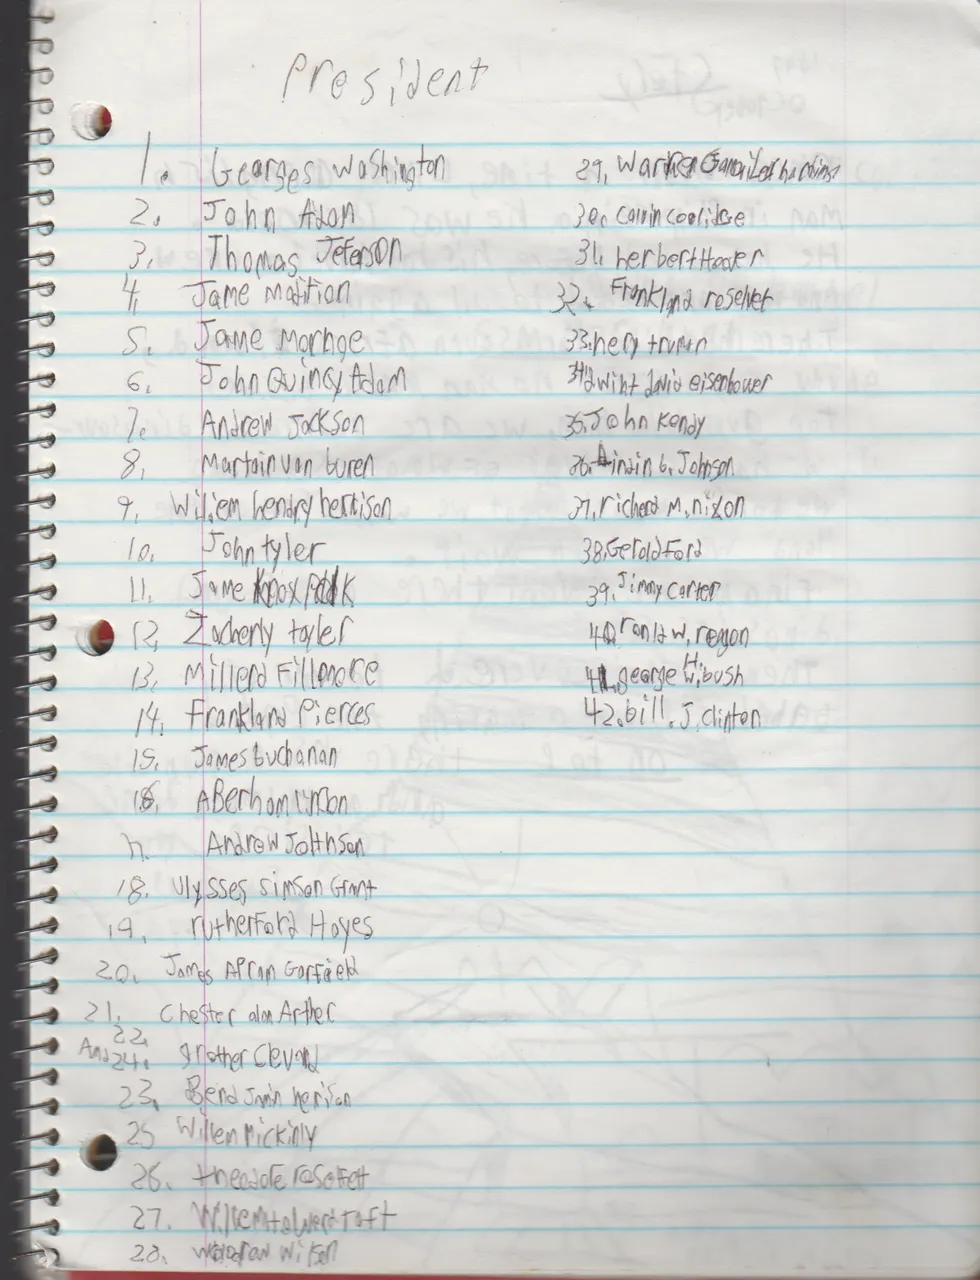 President
1. Georges Washington
2. John Adam
3. Thomas Jeferson
4. Jame Madition
5. Jame Morhge
6. John Quincy Adam
7. Andrew Jackson
8. Martain van buren
9. Williem hendry herrison
10. John tyler
11. Jame Knox Polk
12. Zacherly tayler
13. Millerd Fillmore
14. Frankland Pierces
15. James buchanan
16. ABerham lincon
17. Andrew Johnson
18. Ulysses simson Grant
19. rutherford Hayes
20. James Apram Garfield
21. Chester alan Arther
22.
And 24. grother Clevand
23. Bend Jamin herison
25 Willem Mickinly
26. theodore resefelt
27. Willem howerd taft
28. woodrow wilson
29. Warren harding
30. calvin coolidge
31. herbert Hoover
32. Frankland reselvet
33. hery truman
34. dwint david eisenhower
35. John Kendy
36. lindin b. Johnson
37. richerd M. nixon
38. Gerold Ford
39. Jimmy carter
40 ronld w. regon
41. george H. W. bush
42. bill. J. clinton